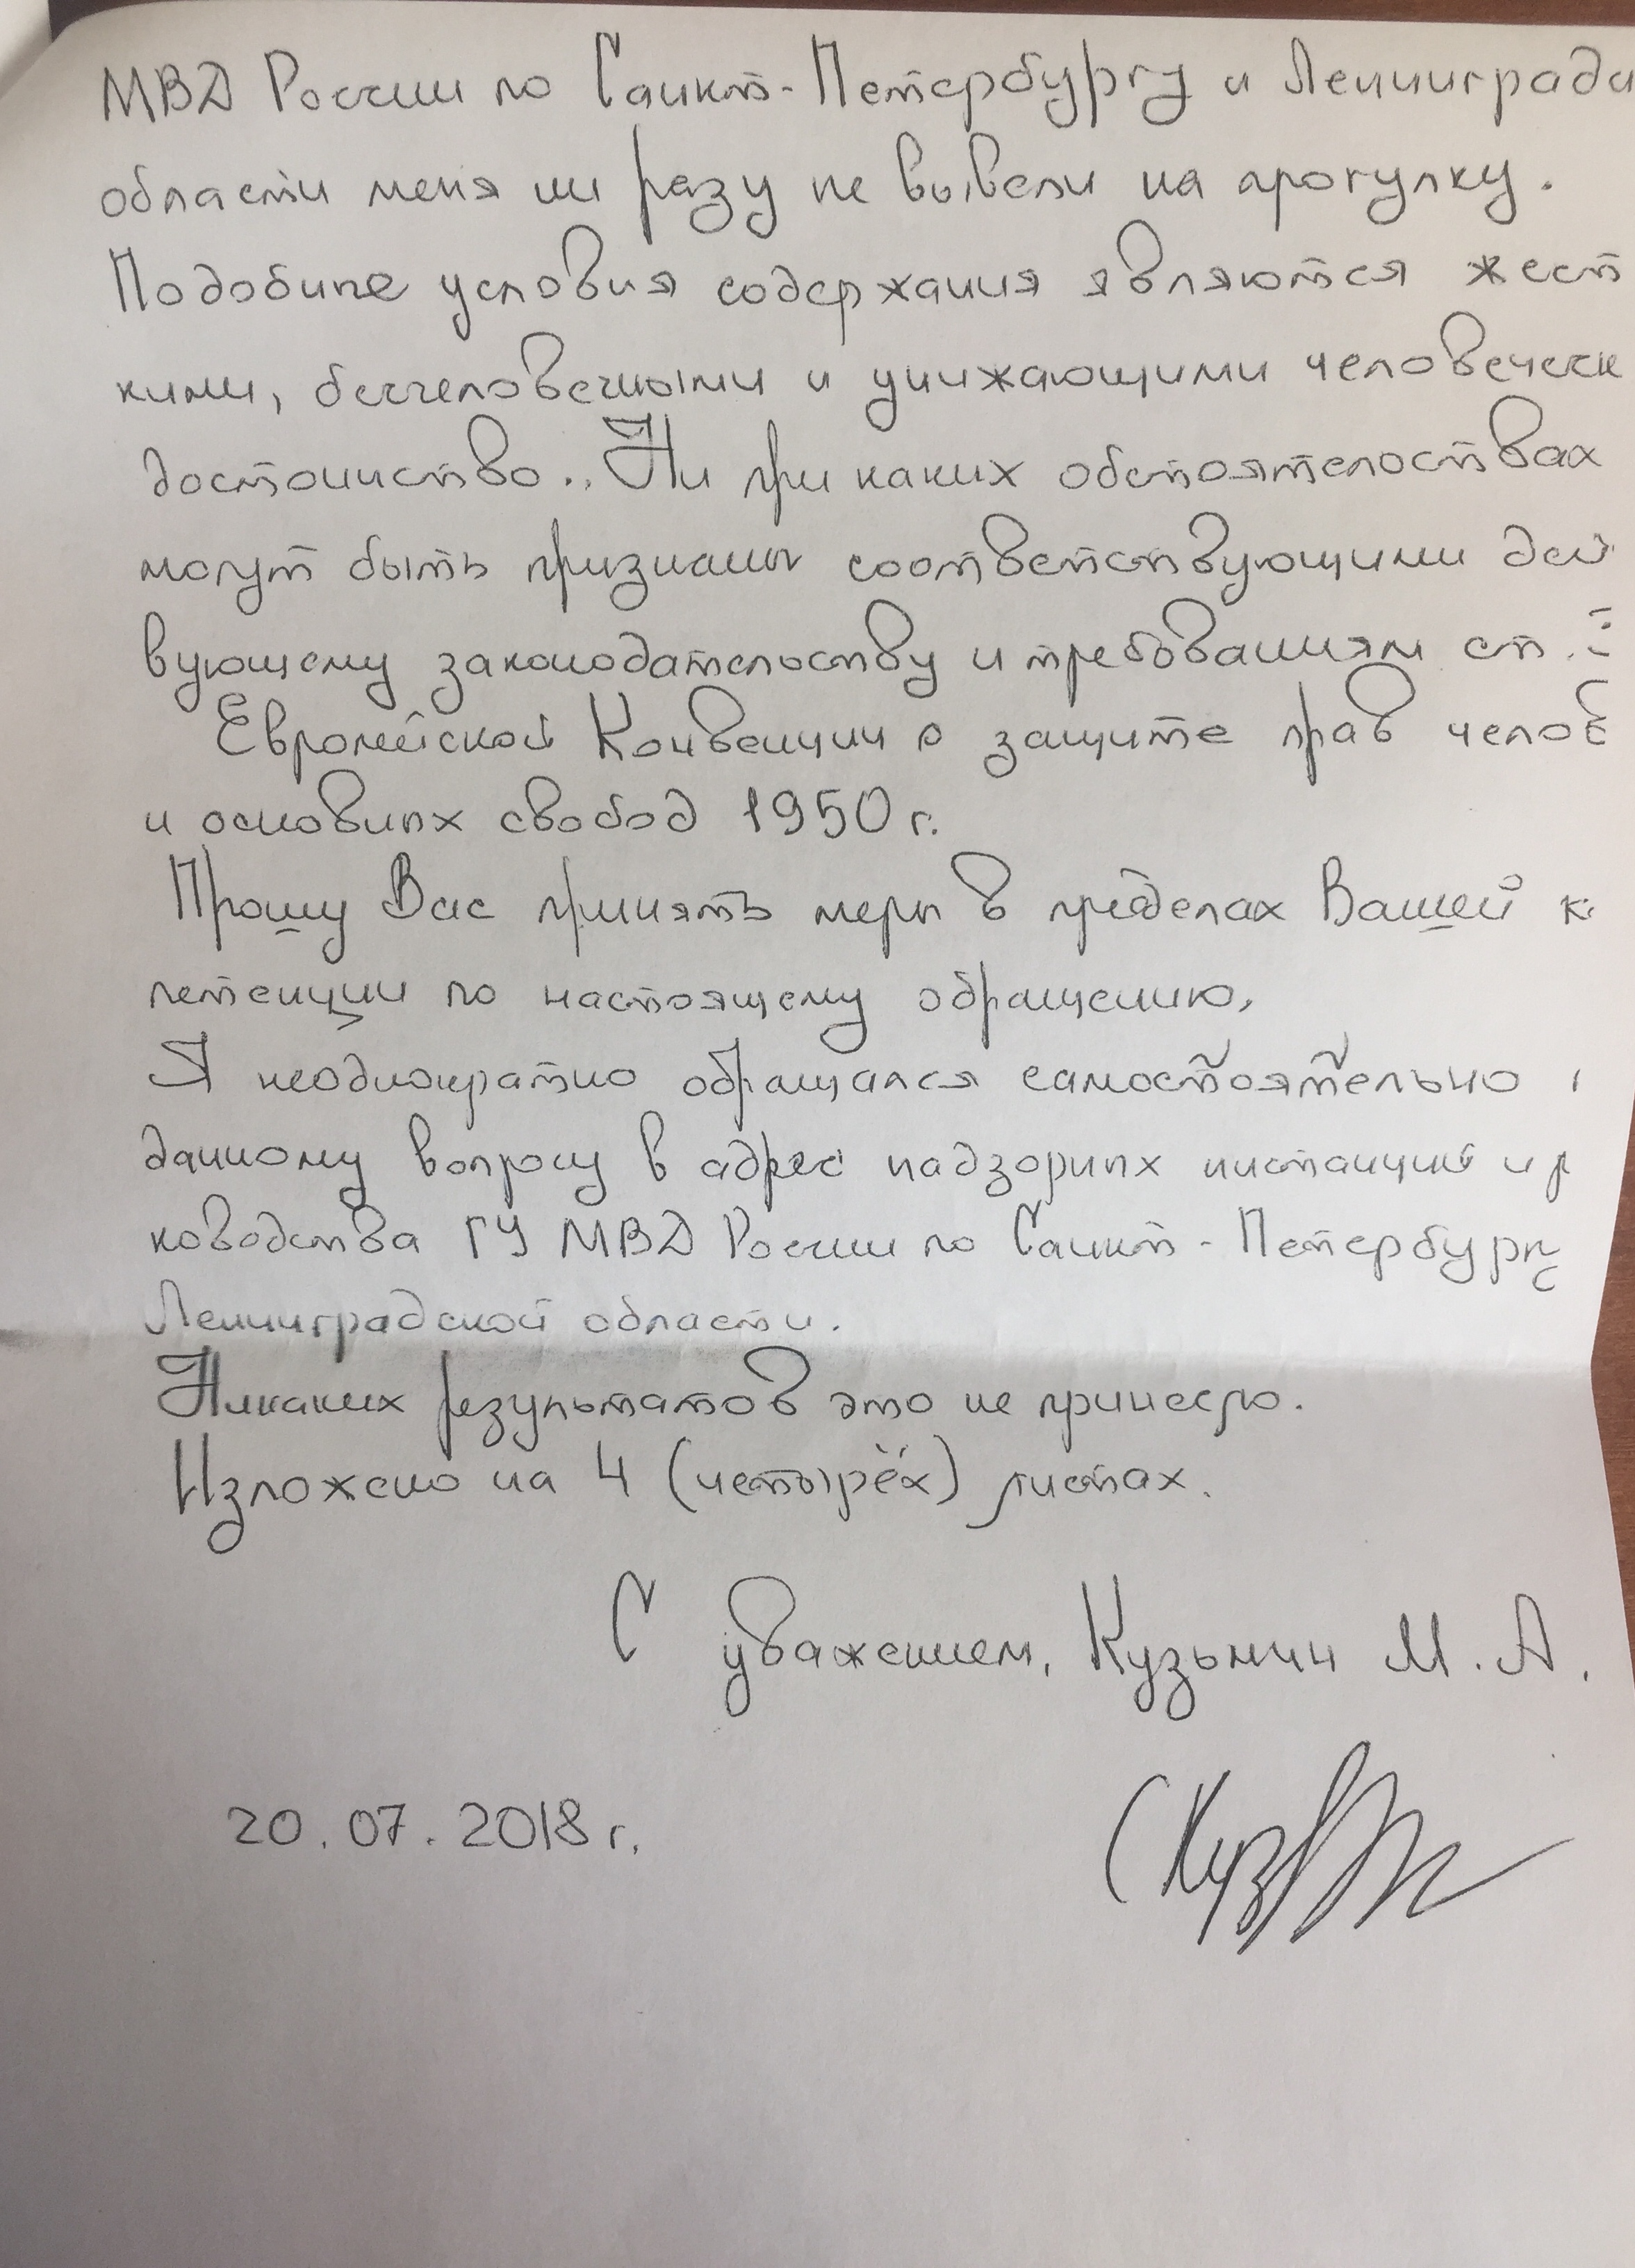 МВД России по Санкт-Петербургу и Ленингради
области меня ни разу не вывели на прогулку.
Подобные условия содержания являются жест
кими, бесчеловечными и унижающими человеческ
достоинство.. Ни при каких обстоятельствах
могут быть признаны соответствующими дей
вующему законодательству и требованиям ст.
Европейской Конвенции о защите прав челов
и основных свобод 1950 г.
Прошу Вас принять меры в пределах Вашей к
петенции по настоящему обращению.
Я неоднократно обращался самостоятельно
данному вопросу в адрес надзорных инстанций и р
ководства ГУ МВД России по Санкт-Петербургу
Ленинградской области.
Никаких результатов это не принесло.
Изложено на 4 (четырёх) листах.
С уважением, Кузьмин М.А.
20.07.2018 г.